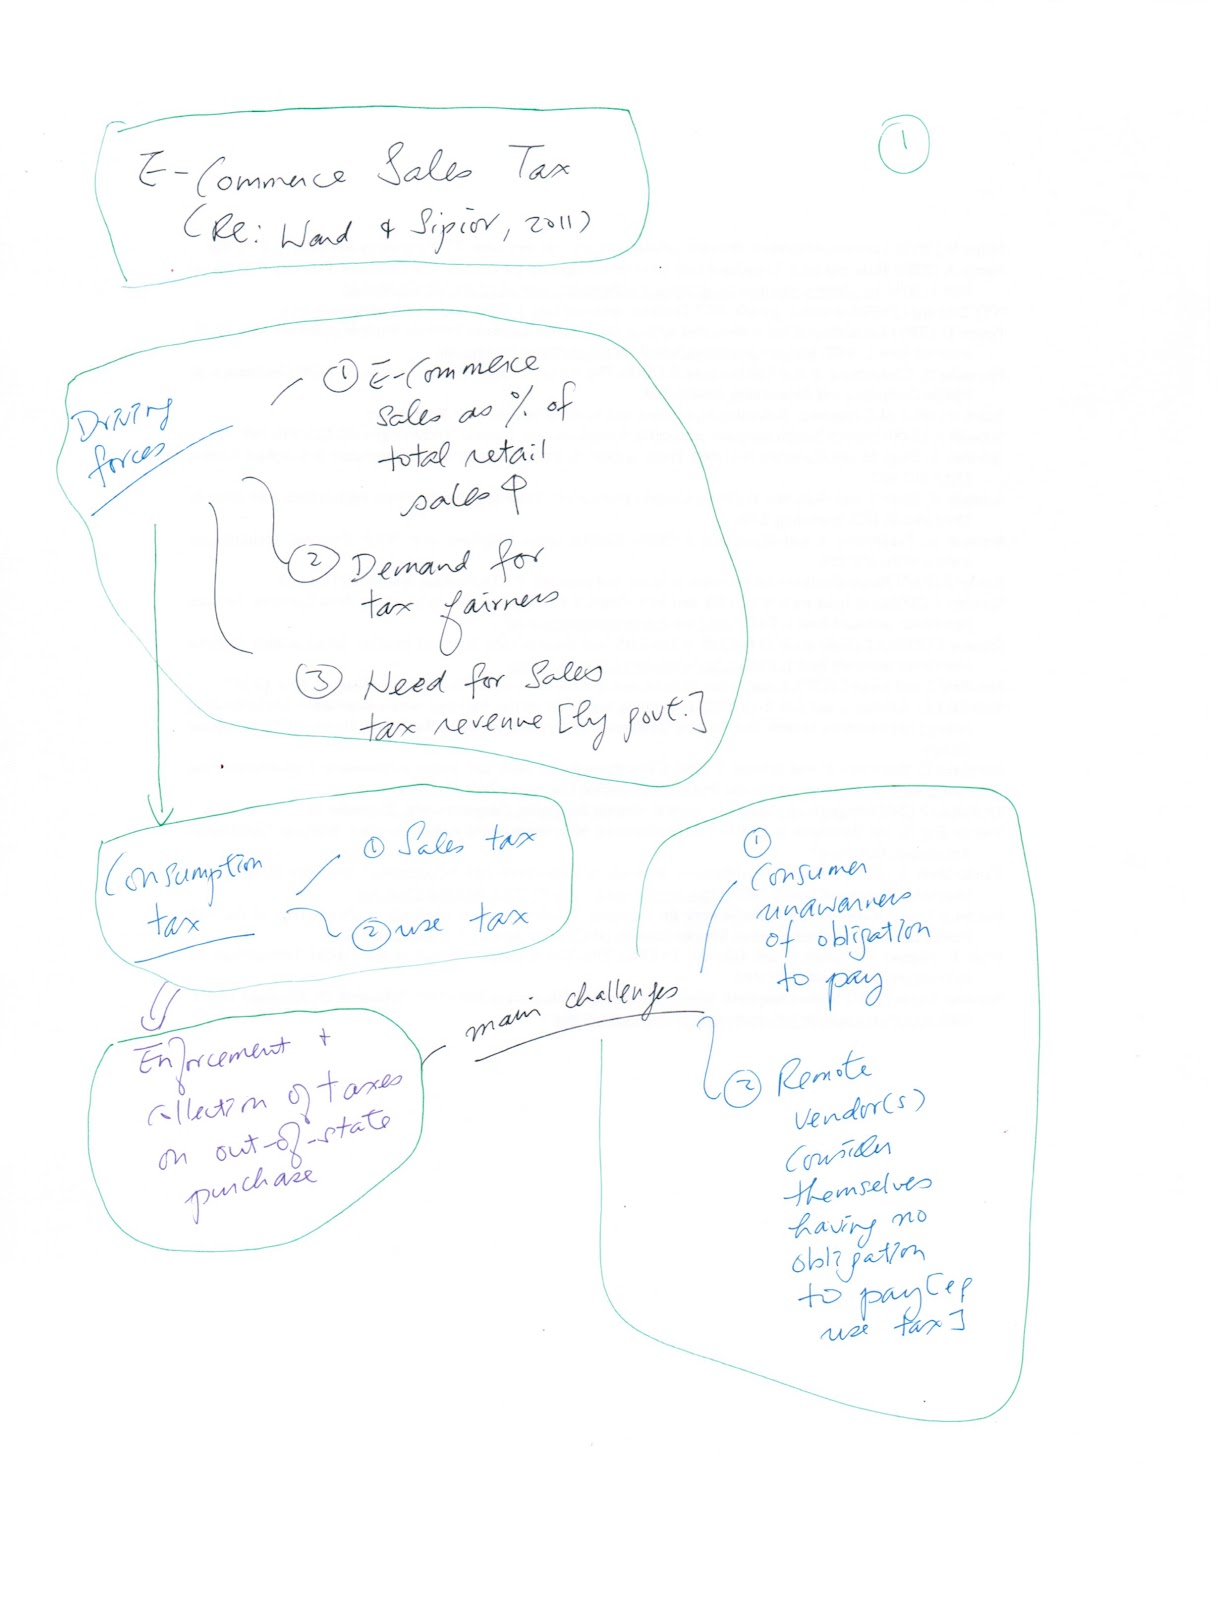 E-Commerce Sales Tax
(Re: Ward & Sipior, 2011)
1
Driving
forces
① E-Commerce
sales as % of
total retail
sales ↑
② Demand for
tax fairness
③ Need for Sales
tax revenue [by govt.]
Consumption
tax
① Sales tax
② use tax
Enforcement +
collection of taxes
on out-of-state
purchase
main challenges
①
Consumer
unawarness
of obligation
to pay
② Remote
vendor(s)
Consider
themselves
having no
obligation
to pay [eg
use tax]